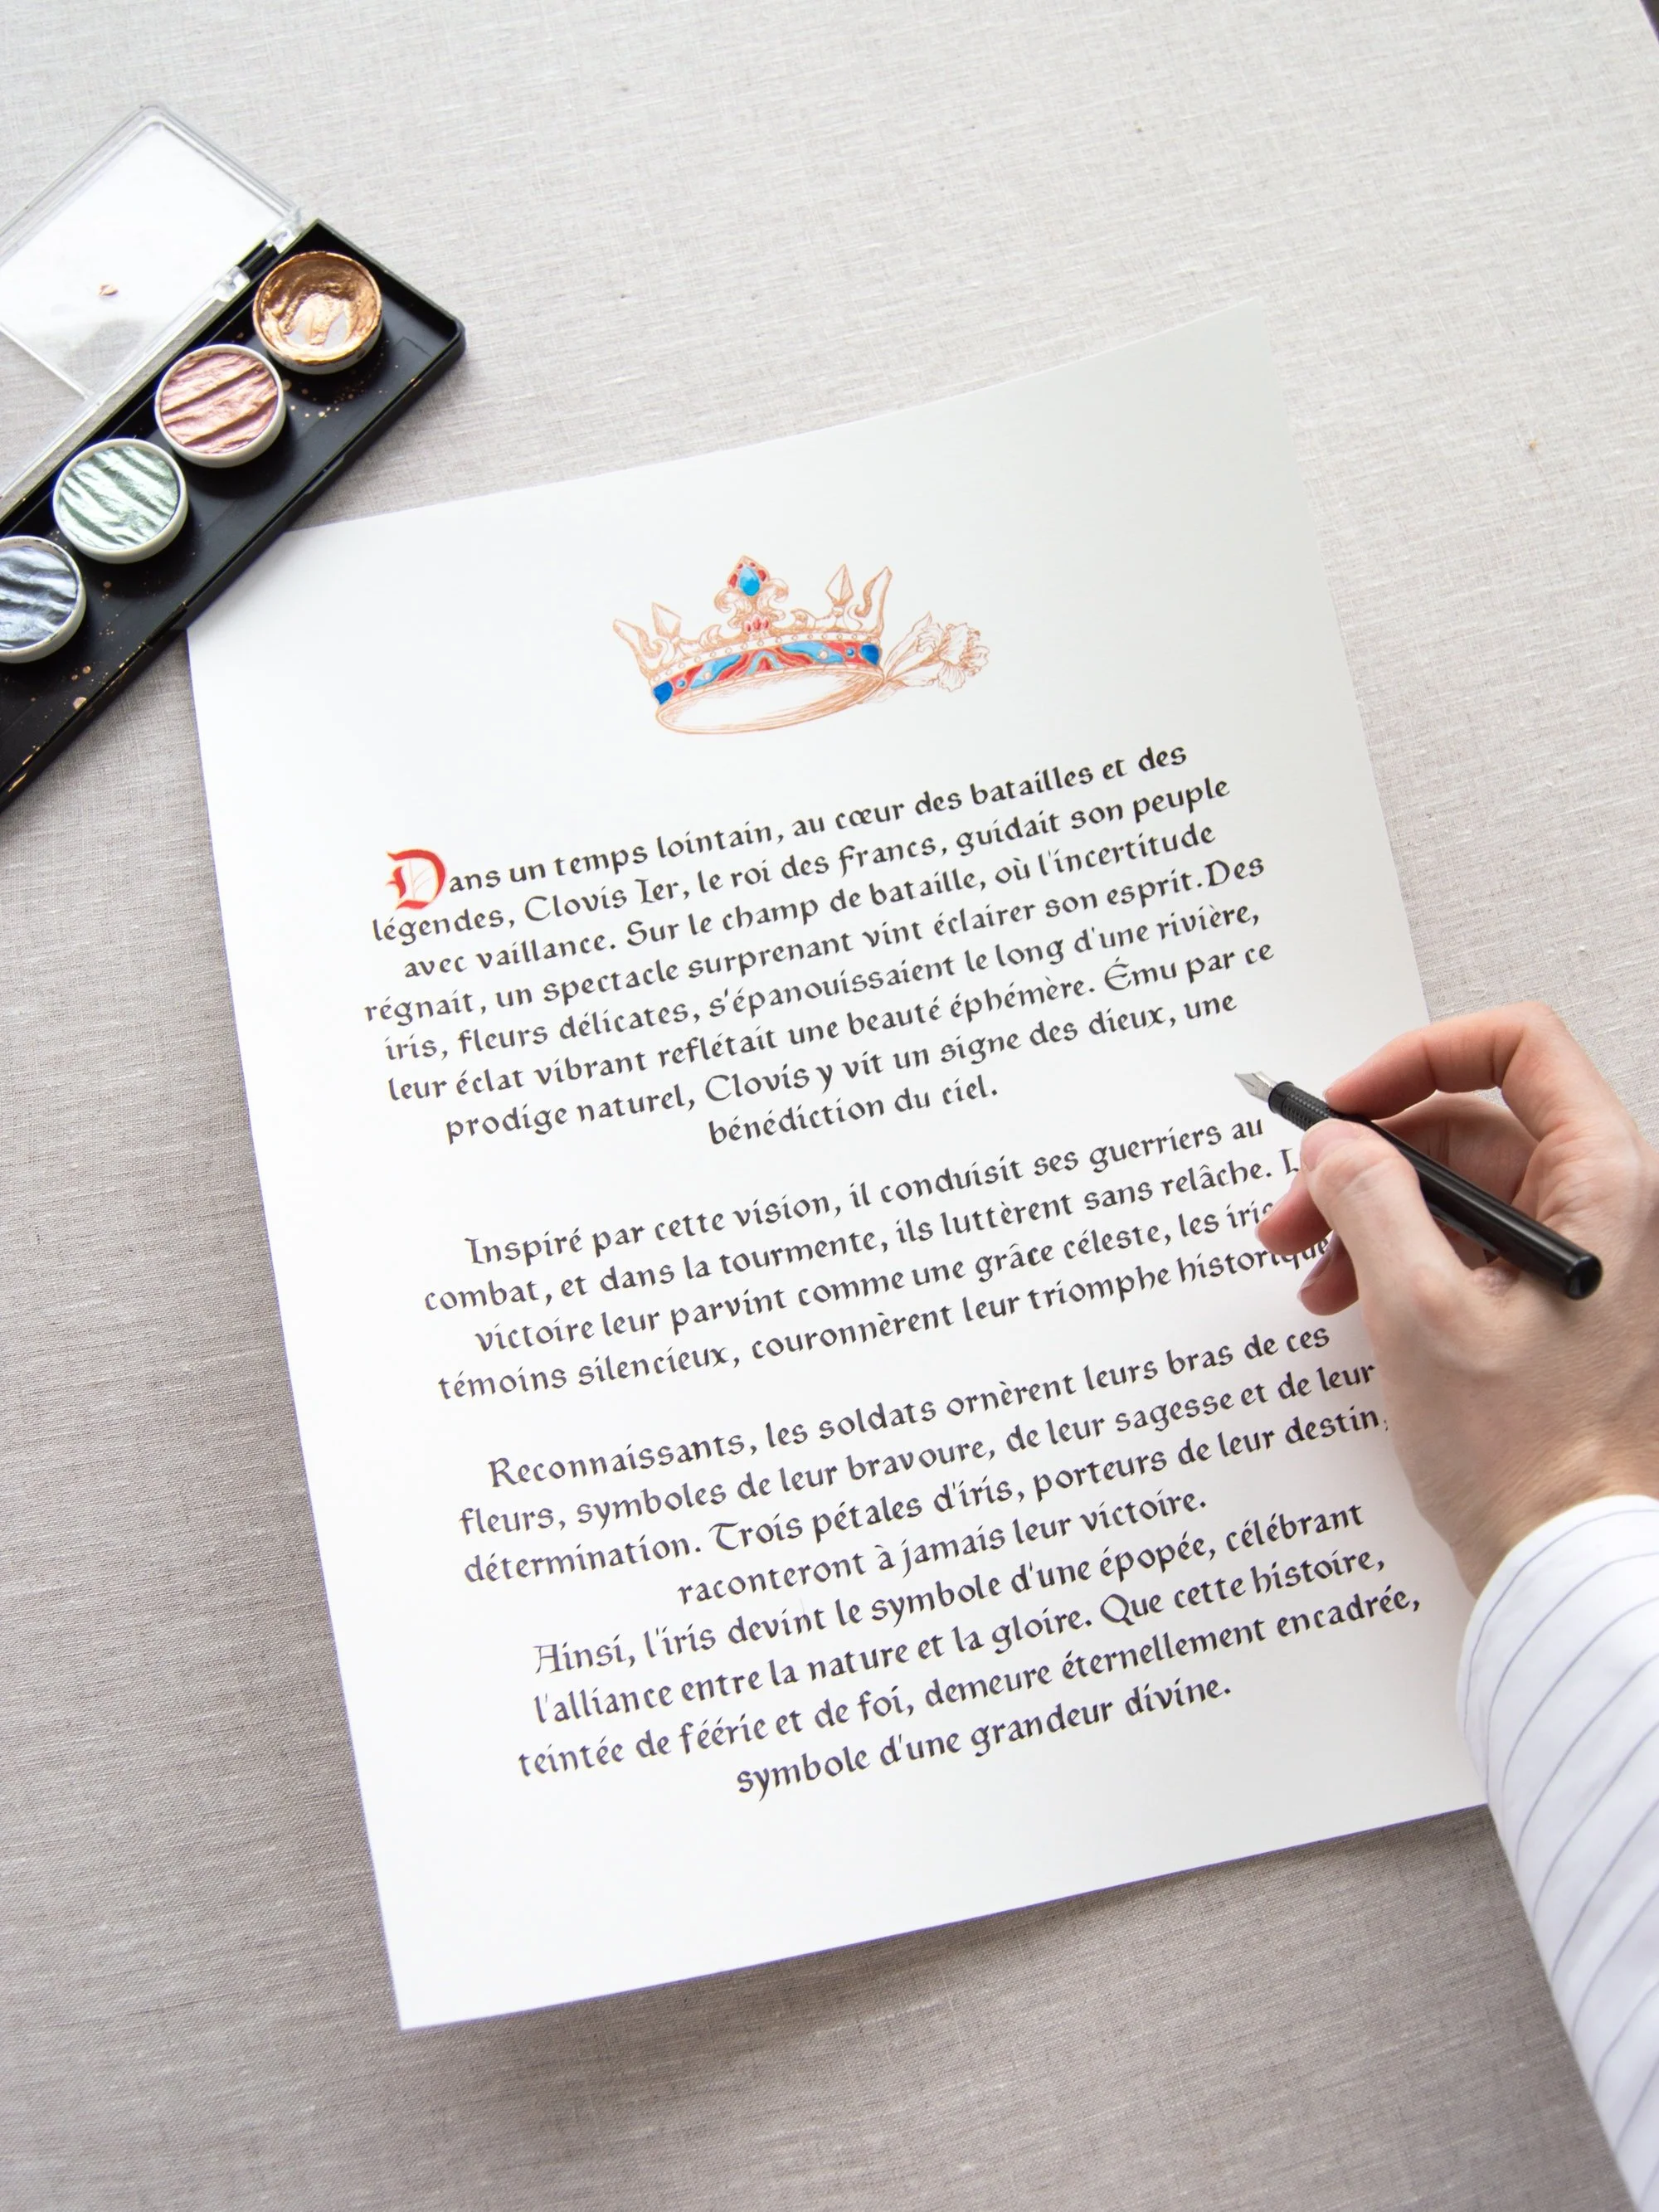 Dans un temps lointain, au cœur des batailles et des
légendes, Clovis Ier, le roi des Francs, guidait son peuple
avec vaillance. Sur le champ de bataille, où l'incertitude
régnait, un spectacle surprenant vint éclairer son esprit.Des
iris, fleurs délicates, s'épanouissaient le long d'une rivière,
leur éclat vibrant reflétait une beauté éphémère. Ému par ce
prodige naturel, Clovis y vit un signe des dieux, une
bénédiction du ciel.
Inspiré par cette vision, il conduisit ses guerriers au
combat, et dans la tourmente, ils luttèrent sans relâche.
victoire leur parvint comme une grâce céleste, les
témoins silencieux, couronnèrent leur triomphe historique
Reconnaissants, les soldats ornèrent leurs bras de ces
fleurs, symboles de leur bravoure, de leur sagesse et de leur
détermination. Trois pétales d'iris, porteurs de leur destin,
raconteront à jamais leur victoire.
Ainsi, l'iris devint le symbole d'une épopée, célébrant
l'alliance entre la nature et la gloire. Que cette histoire,
teintée de féérie et de foi, demeure éternellement encadrée,
symbole d'une grandeur divine.